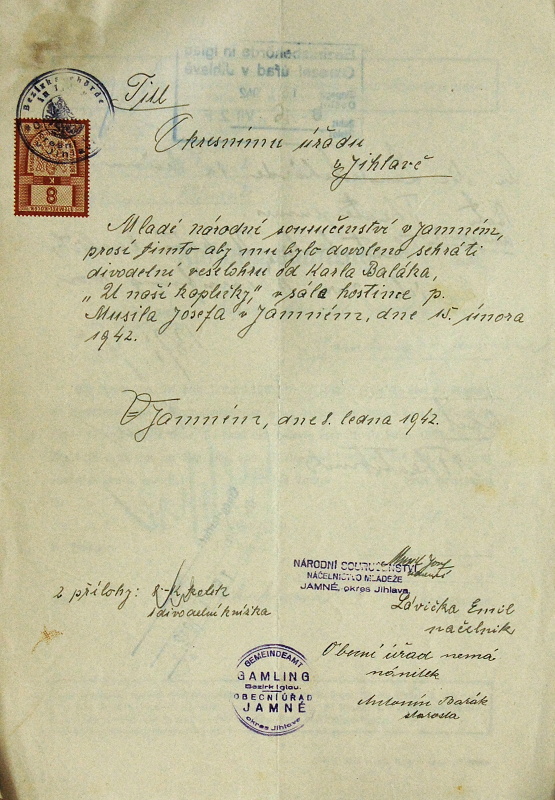 Bezirksbehörde
8
K
Titl
Okresnímu úřadu
v Jihlavě
Mladé národní souručenství v Jamném,
prosí tímto aby mu bylo dovoleno sehráti
divadelní veselohru od Karla Baláka,
„U naší kapličky", v sále hostince p.
Musila Josefa v Jamném, dne 15. února
1942.
V Jamném, dne 8. ledna 1942.
NÁRODNÍ SOURUČENSTVÍ
NÁČELNICTVO MLÁDEŽE
JAMNÉ, okres Jihlava
2 přílohy: 8.-K kolek
1 divadelní knížka
Lávička Emil
náčelník
Obecní úřad nemá
námitek
Antonín Barák
starosta
GEMEINDEAMT
GAMLING
Bezirk Iglau.
OBECNÍ ÚŘAD
JAMNÉ
okres Jihlava